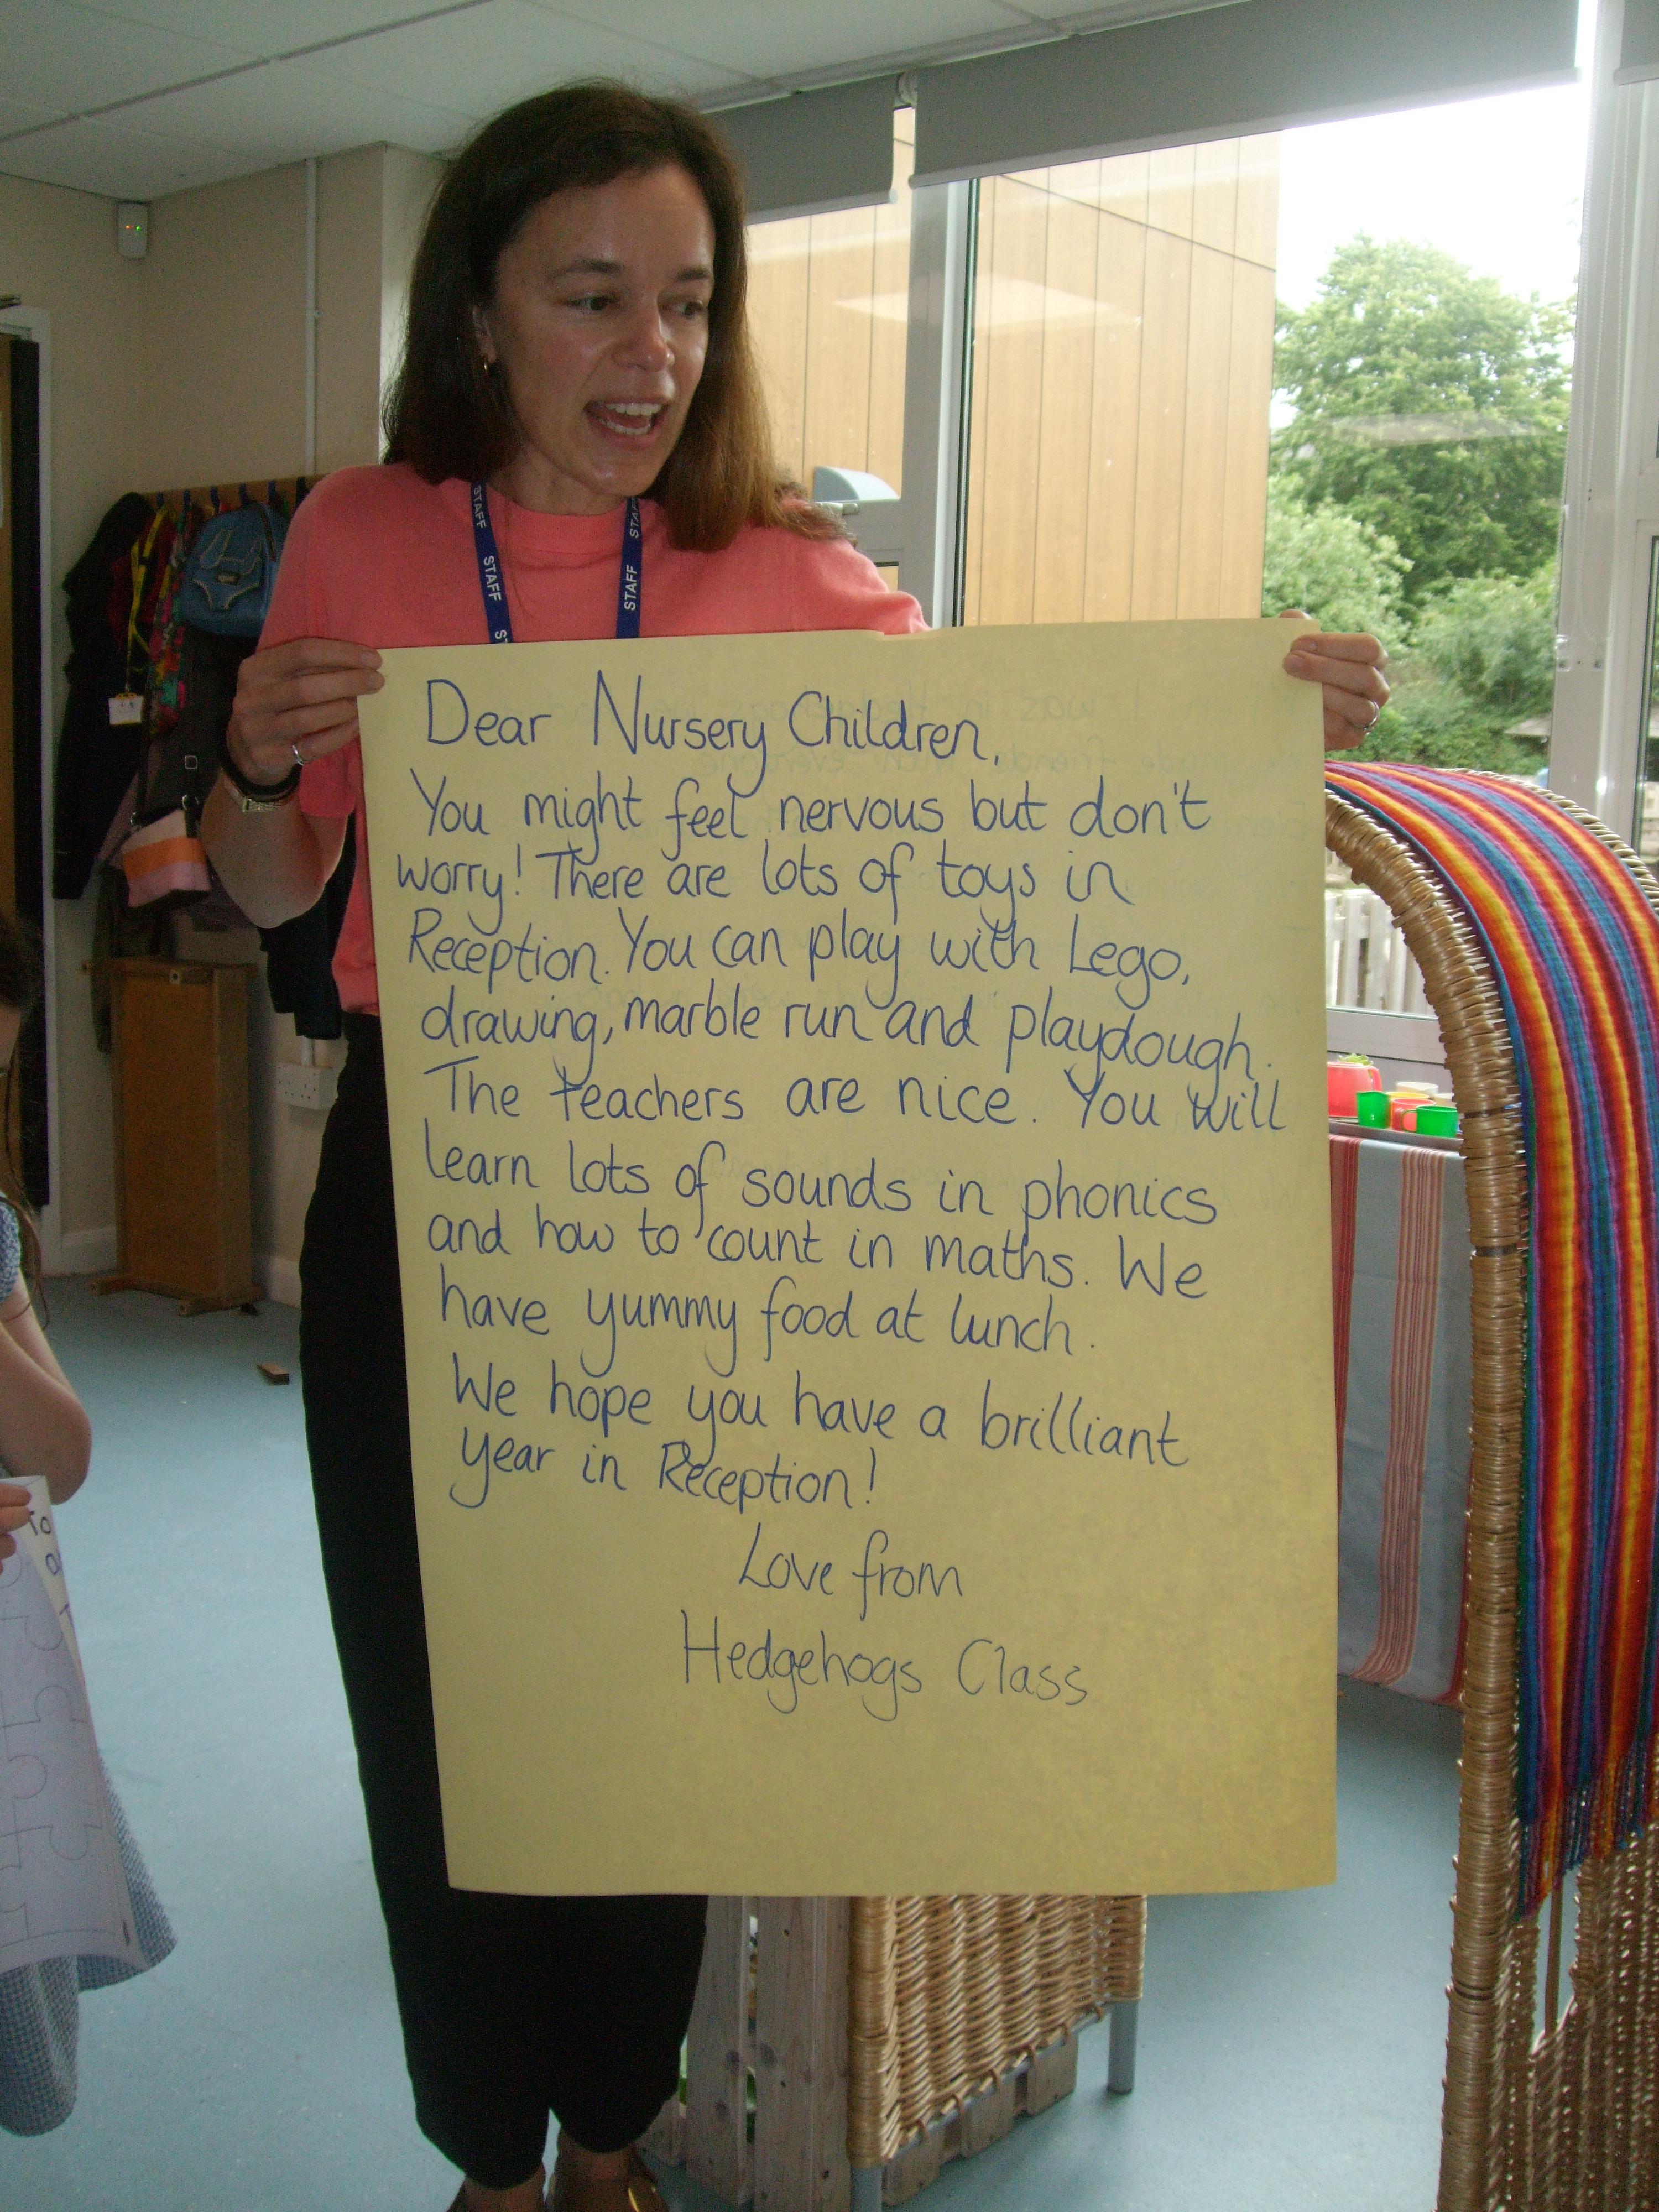 STAFF
STAFF
STAFF
STAFF
Dear Nursery Children,
You might feel nervous but don't
worry! There are lots of toys in
Reception. You can play with Lego,
drawing, marble run and playdough.
The teachers are nice. You will
learn lots of sounds in phonics
and how to count in maths. We
have yummy food at lunch.
We hope you have a brilliant
year in Reception!
Love from
Hedgehogs Class
To